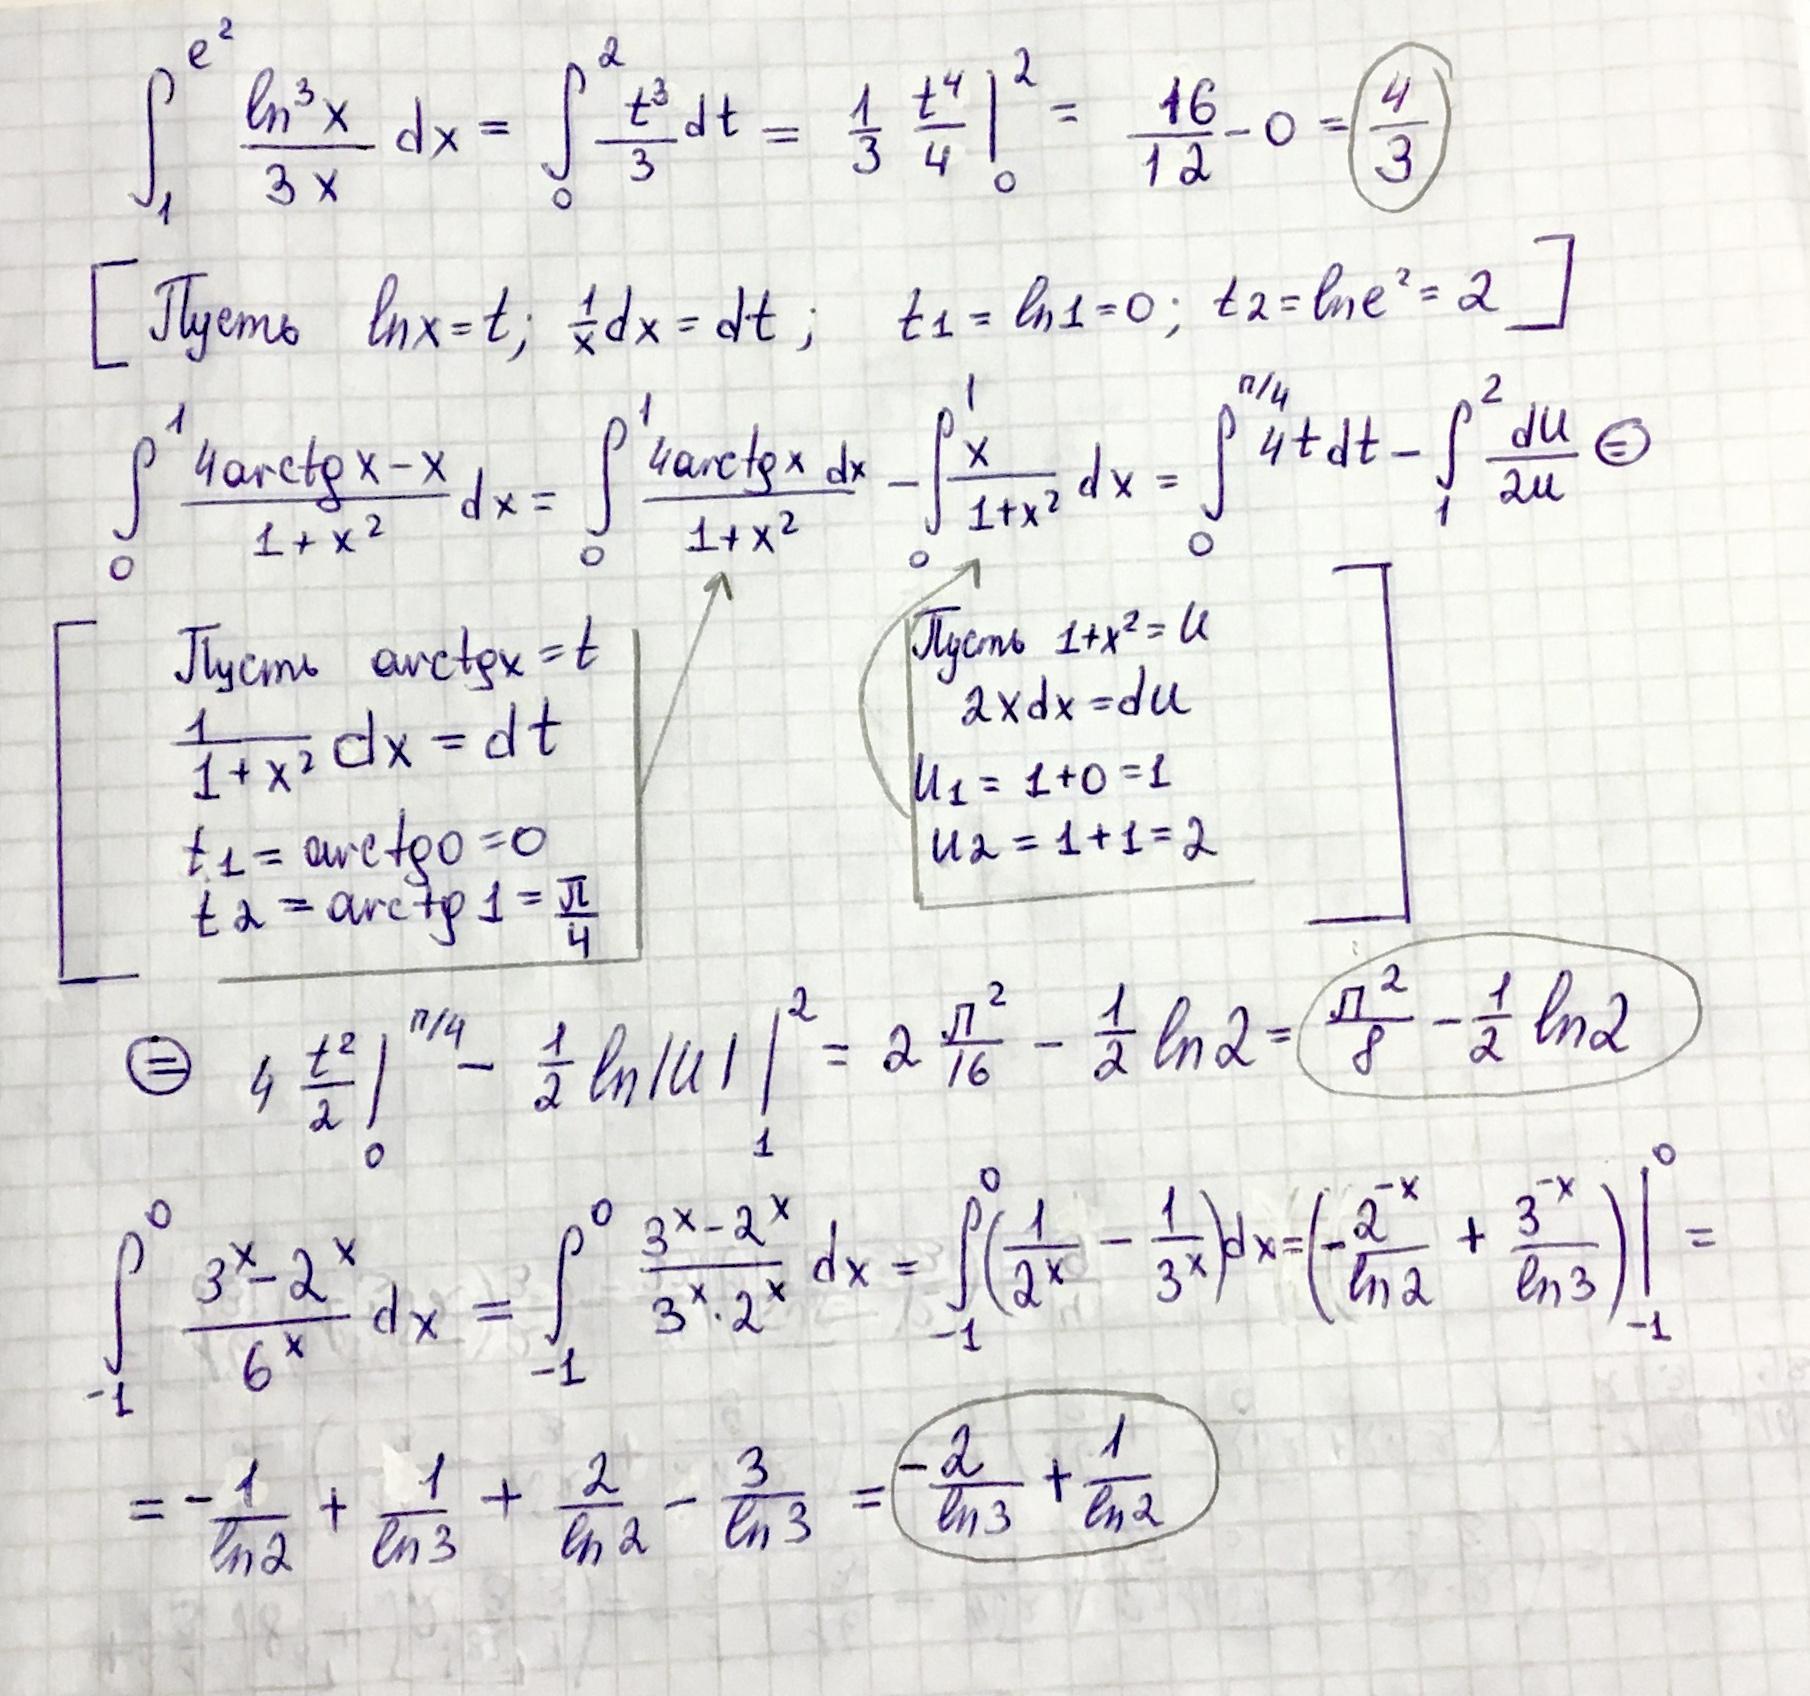 ∫₁^{e²} ln³x/3x dx = ∫₀² t³/3 dt = 1/3 t⁴/4 |₀² = 16/12 - 0 = 4/3
[Пусть lnx = t; 1/x dx = dt; t1 = ln1 = 0; t2 = lne² = 2]
∫₀¹ (4arctgx - x)/(1+x²) dx = ∫₀¹ 4arctgx dx/(1+x²) - ∫₀¹ x/(1+x²) dx = ∫₀^{π/4} 4tdt - ∫₁² du/2u ⊜
[Пусть arctgx = t
1/(1+x²) dx = dt
t1 = arctg0 = 0
t2 = arctg1 = π/4
Пусть 1+x² = u
2xdx = du
u1 = 1+0 = 1
u2 = 1+1 = 2]
⊜ 4 t²/2 |₀^{π/4} - 1/2 ln|u| |₁² = 2 π²/16 - 1/2 ln2 = π²/8 - 1/2 ln2
∫₋₁⁰ (3ˣ - 2ˣ)/6ˣ dx = ∫₋₁⁰ (3ˣ - 2ˣ)/(3ˣ · 2ˣ) dx = ∫₋₁⁰ (1/2ˣ - 1/3ˣ)dx = (-2⁻ˣ/ln2 + 3⁻ˣ/ln3)|₋₁⁰ =
= -1/ln2 + 1/ln3 + 2/ln2 - 3/ln3 = -2/ln3 + 1/ln2